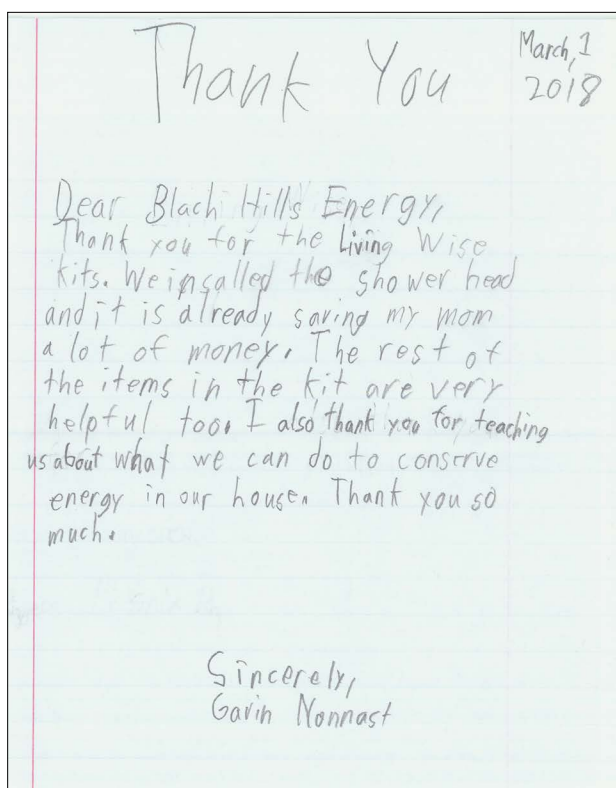 Thank You
March, 1
2018
Dear Blach Hills Energy,
Thank you for the Living Wise
kits. We insalled the shower head
and it is already saving my mom
a lot of money. The rest of
the items in the kit are very
helpful too. I also thank you for teaching
us about what we can do to conserve
energy in our house. Thank you so
much.
Sincerely,
Gavin Nonnast